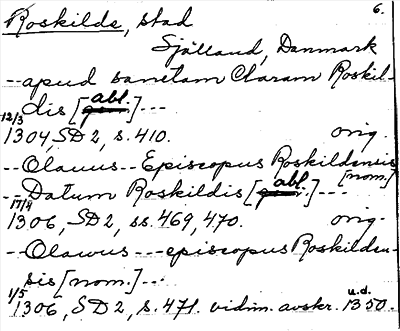 6.
Roskilde, stad
Sjælland, Danmark
--apud sanctam Claram Roskil-
dis [abl.]---
12/3
1304, SD 2, s. 410. orig.
--Olauus--Episcopus Roskildensis
[nom.]
--Datum Roskildis [abl.]---
17/4
1306, SD 2, ss. 469, 470. orig.
--Olawus---episcopus Roskilden-
sis [nom.]---
1/5 u.d.
1306, SD 2, s. 471. vidim. avskr. 1350.